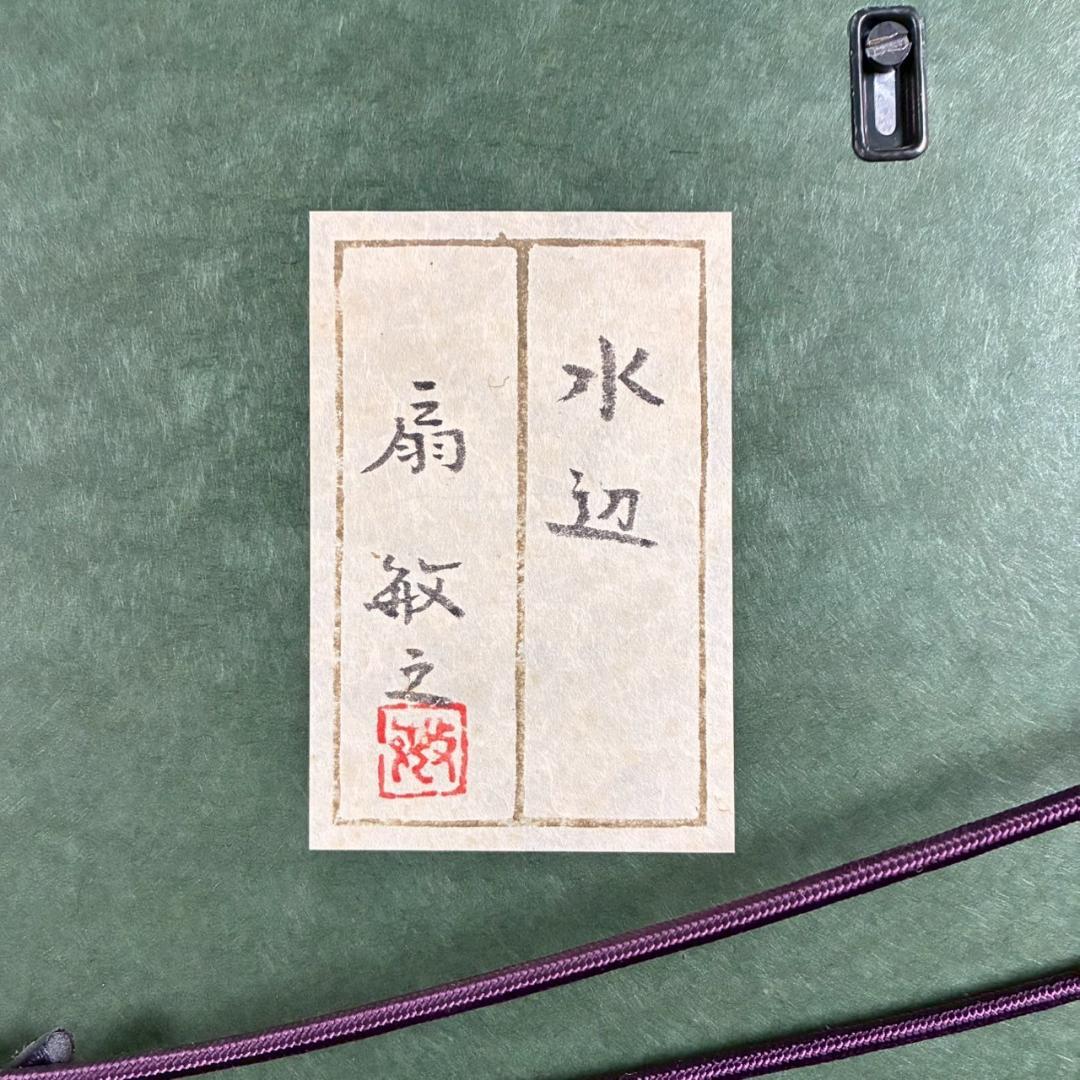 水辺
扇 敏之